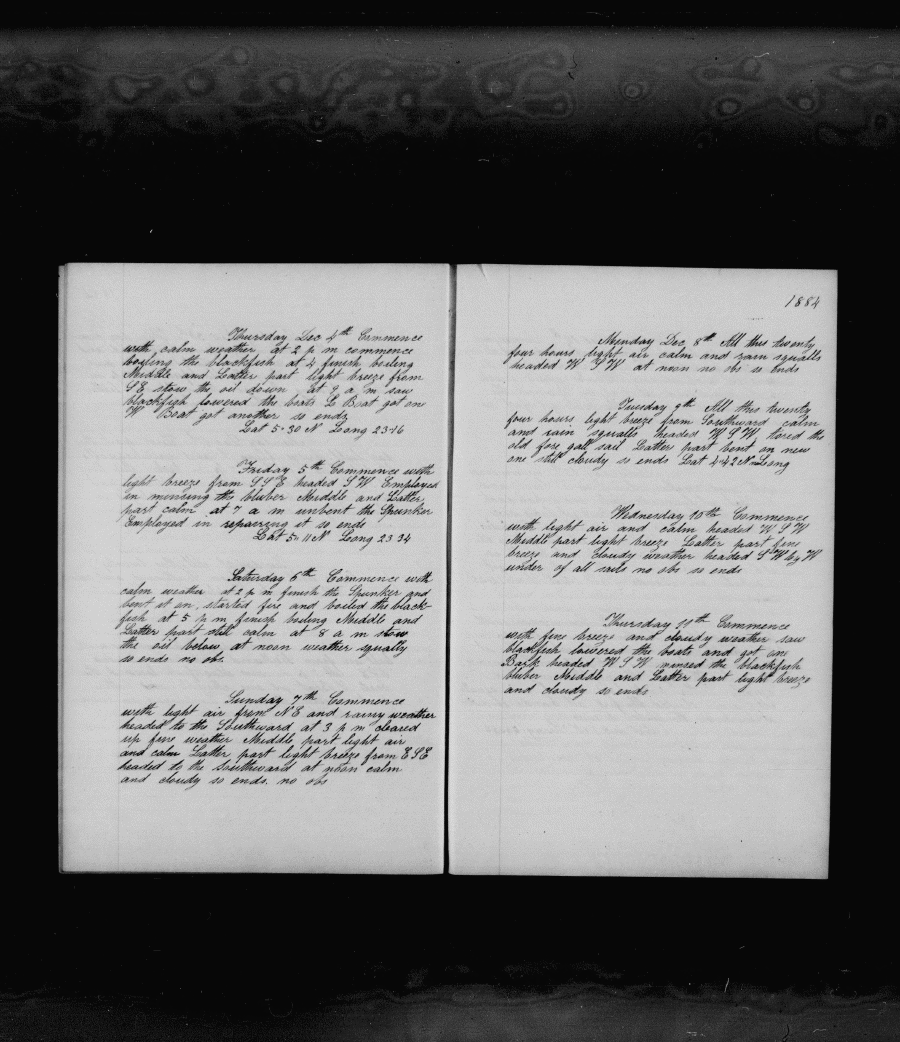 Thursday Dec 4th Commence
with calm weather at 2 p m commence
boiling the blackfish at 4 finish boiling
Middle and Latter part light breeze from
SE stow the oil down at 9 a m saw
blackfish lowered the boats L Boat got on
W Boat got another so ends
Lat 5-30 N Loong 23-16
Friday 5th Commence with
light breeze from SSE headed SW Employed
in minsing the bluber Middle and Latter
part calm at 7 a m unbent the Spunker
Employed in repairring it so ends
Lat 5-11 N Loong 23 34
Saturday 6th Commence with
calm weather at 2 p m finish the Spunker and
bent it on, started fire and boiled the black-
fish at 5 p m finish boiling Middle and
Latter part still calm at 8 a m stow
the oil below at noon weather squally
so ends no obs.
Sunday 7th Commence
with light air from NE and rainy weather
headed to the Southward at 3 p m cleared
up fine weather Middle part light air
and calm Latter part light breeze from ESE
headed to the Southward at noon calm
and cloudy so ends. no obs
1884
Monday Dec 8th All this twenty
four hours light air calm and rain squalls
headed W S W at noon no obs so ends
Tuesday 9th All this twenty
four hours light breeze from Southward calm
and rain squalls headed W S W the
old fore gall sail Latter part bent on new
one still cloudy so ends Lat 4-42 N Loong
Wednesday 10th Commence
with light air and calm headed W S W
Middle part light breeze Latter part fine
breeze and cloudy weather headed S W by W
under of all sails no obs so ends
Thursday 11th Commence
with fine breeze and cloudy weather saw
blackfish lowered the boats and got one
Back headed W S W minced the blackfish
bluber Middle and Latter part light breeze
and cloudy so ends